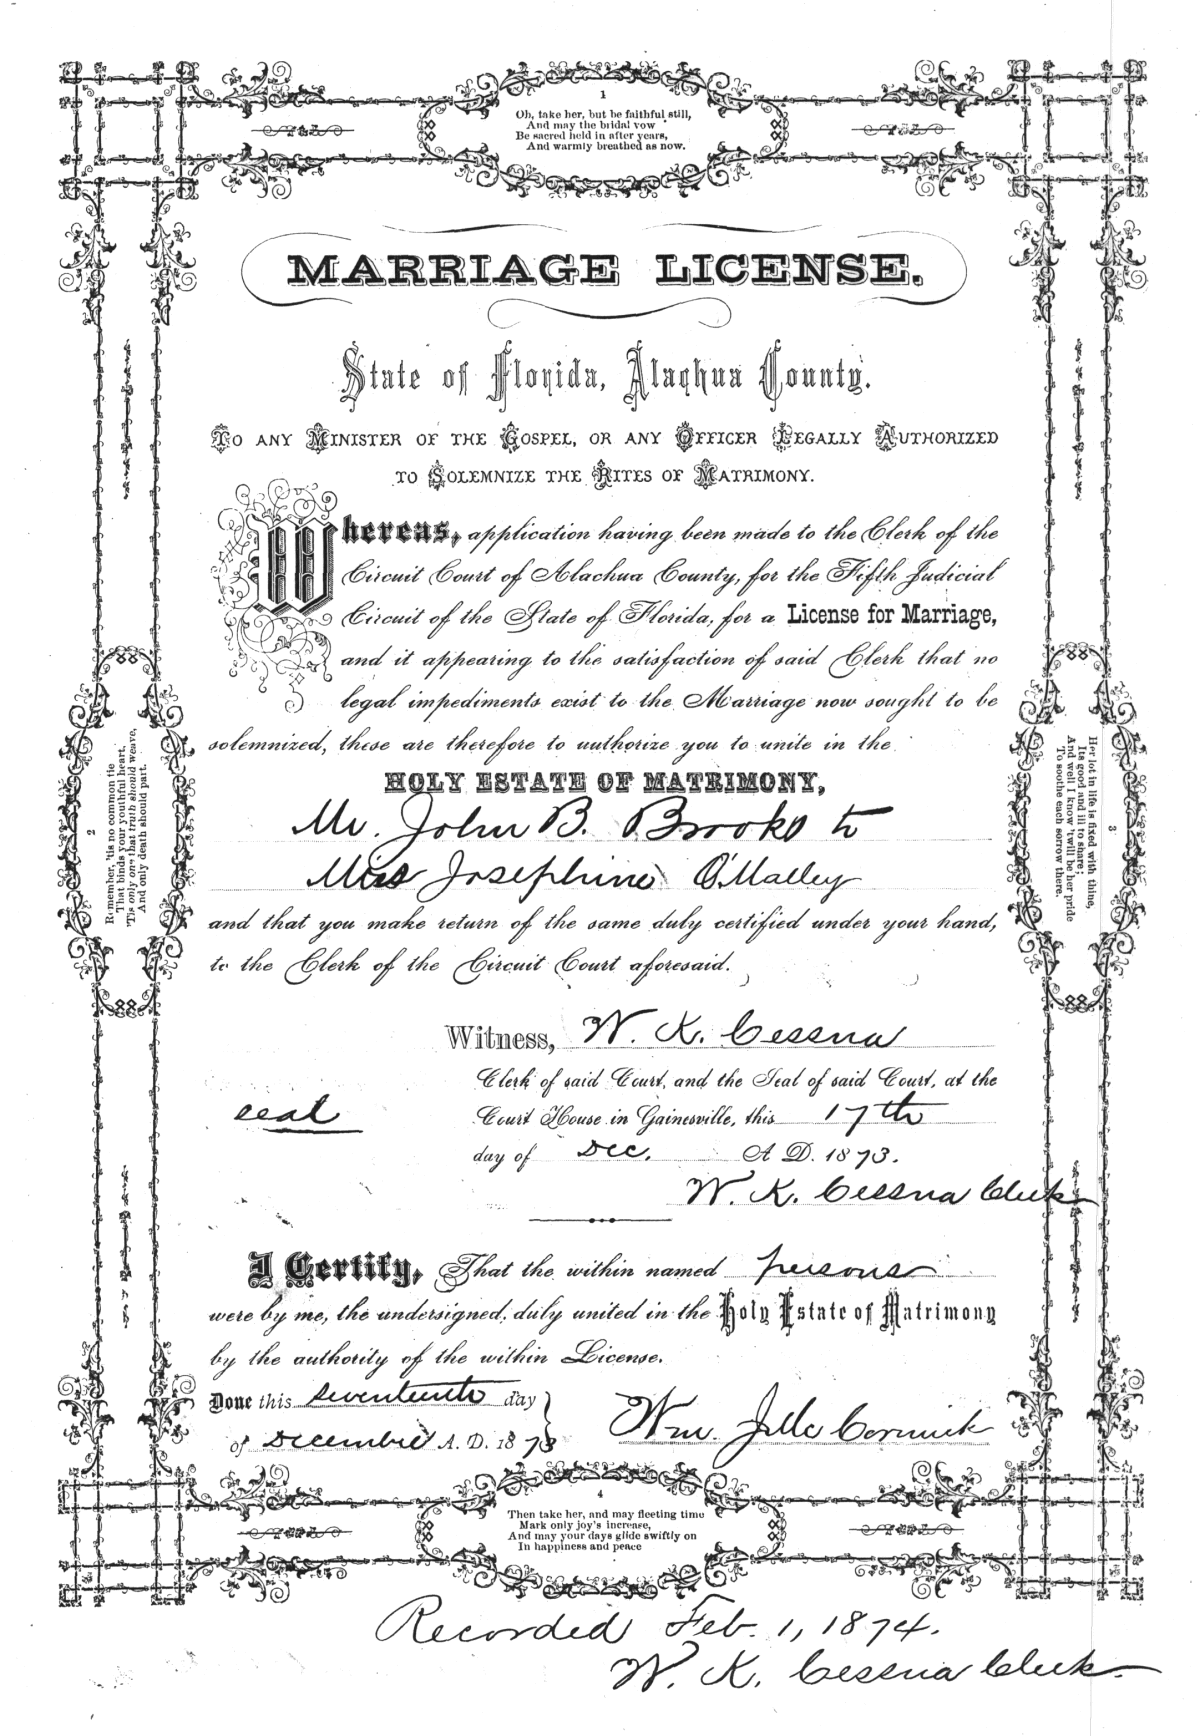 1
Oh, take her, but be faithful still,
And may the bridal vow
Be sacred held in after years,
And warmly breathed as now.
MARRIAGE LICENSE.
State of Florida, Alachua County.
TO ANY MINISTER OF THE GOSPEL, OR ANY OFFICER LEGALLY AUTHORIZED
TO SOLEMNIZE THE RITES OF MATRIMONY.
Whereas, application having been made to the Clerk of the
Circuit Court of Alachua County, for the Fifth Judicial
Circuit of the State of Florida, for a License for Marriage,
and it appearing to the satisfaction of said Clerk that no
legal impediments exist to the Marriage now sought to be
solemnized, these are therefore to authorize you to unite in the
HOLY ESTATE OF MATRIMONY,
Mr. John B. Brooks to
Mrs Josephine O'Malley
and that you make return of the same duly certified under your hand,
to the Clerk of the Circuit Court aforesaid.
2
Remember, 'tis no common tie
That binds your youthful heart,
'Tis only one that truth should weave,
And only death should part.
3
Her lot in life is fixed with thine,
Its good and ill to share;
And well I know 'twill be her pride
To soothe each sorrow there.
Witness, W. K. Cessna
Clerk of said Court, and the Seal of said Court, at the
seal Court House in Gainesville, this 17th
day of Dec. A D. 1873.
W. K. Cessna Clerk
I Certify, That the within named persons
were by me, the undersigned, duly united in the Holy Estate of Matrimony
by the authority of the within License.
Done this seventeenth day
of December A. D. 1873
Wm. J McCormick
4
Then take her, and may fleeting time
Mark only joy's increase,
And may your days glide swiftly on
In happiness and peace
Recorded Feb. 1, 1874.
W. K. Cessna Clerk